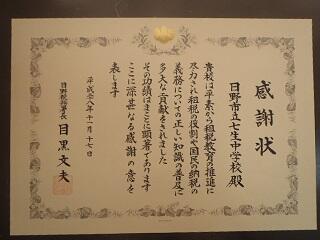 感謝状
日野市立七生中学校殿
貴校は平素から租税教育の推進に
尽力され租税の役割や国民の納税の
義務についての正しい知識の普及に
多大な貢献をされました
その功績はまことに顕著であります
ここに深甚なる感謝の意を
表します
平成二八年十一月十七日
日野税務署長 目黒文夫